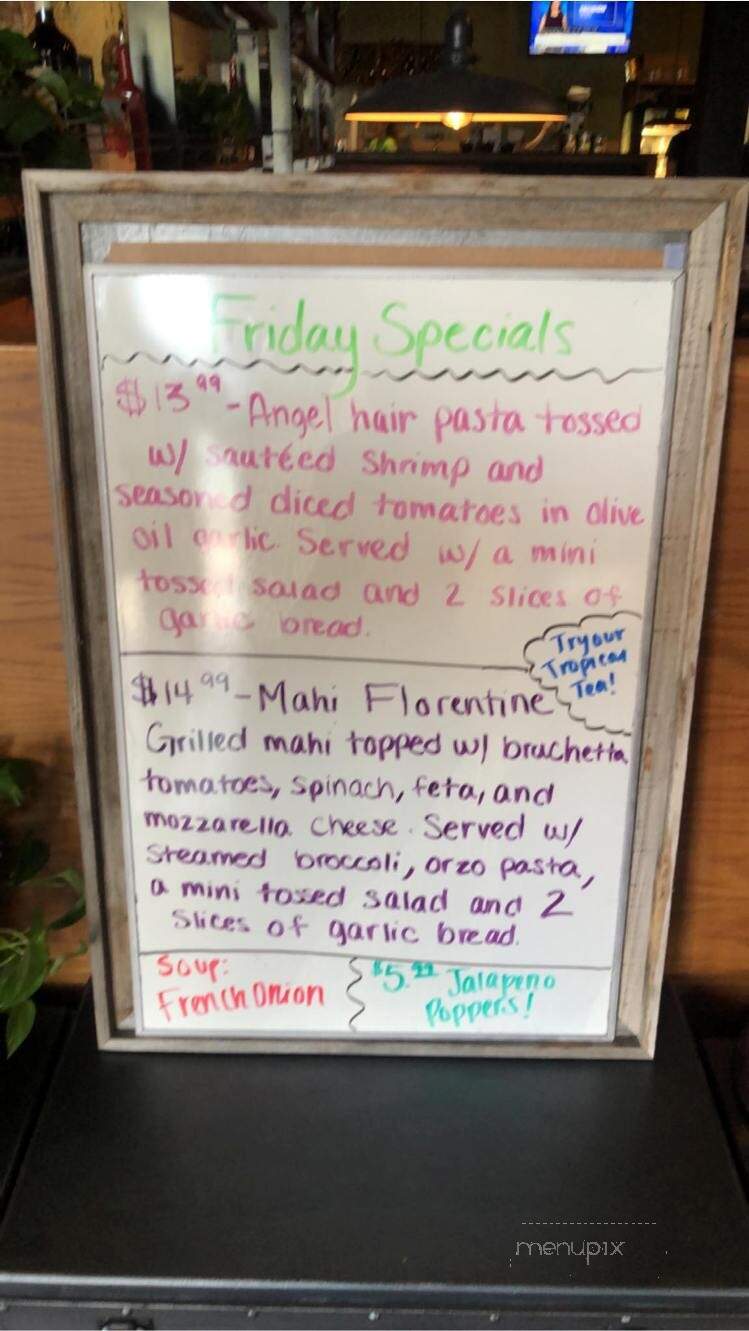 Friday Specials
$13.99 - Angel hair pasta tossed
w/ sautéed shrimp and
seasoned diced tomatoes in olive
oil garlic. Served w/ a mini
tossed salad and 2 slices of
garlic bread.
Try our
Tropical
Tea!
$14.99 - Mahi Florentine
Grilled mahi topped w/ bruchetta
tomatoes, spinach, feta, and
mozzarella cheese. Served w/
steamed broccoli, orzo pasta,
a mini tossed salad and 2
slices of garlic bread.
Soup:
French Onion
$5.99 Jalapeno
Poppers!
menupix